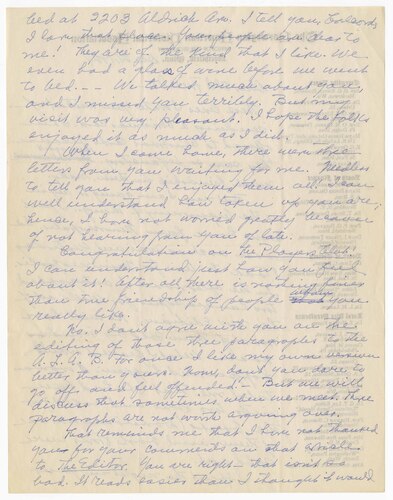 bed at 2203 Aldrich Ave. I tell you,
I love that place. Your people are dear to
me! They are of the kind that I like. We
even had a glass of wine before we went
to bed. -- We talked much about you,
and I missed you terribly. But my
visit was very pleasant. I hope the folks
enjoyed it as much as I did.
When I came home, there were three
letters from you waiting for me. Needless
to tell you that I enjoyed them all. I can
well understand how taken up you are;
hence, I have not worried greatly because
of not hearing from you of late.
Congratulation on the Players Club!
I can understand just how you feel
about it! After all there is nothing finer
than true friendship of people whom you
really like.
No. I don't agree with you on the
editing of those three paragraphs to the
A. L. A. B. For once I like my own version
better than yours. Now, don't you dare to
go off and feel offended - But we will
discuss that sometimes when we meet. Three
paragraphs are not worth arguing over.
That reminds me that I have not thanked
you for your comments on that
to The Editor. You are right - that isn't so
bad. It reads easier than I thought it would